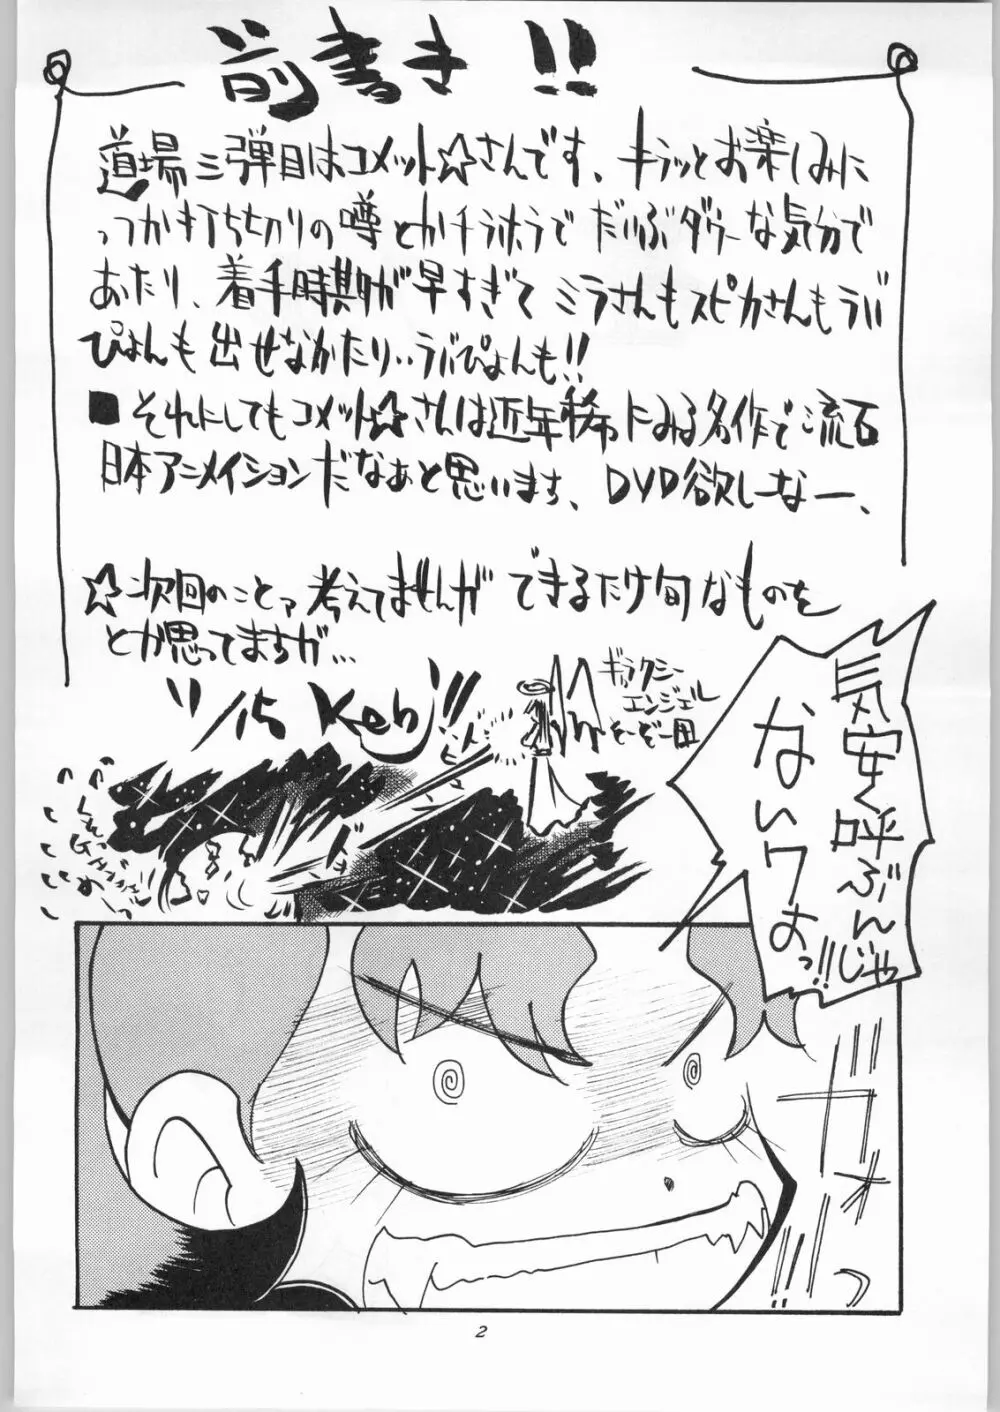 前書き!!
道場三弾目はコメット☆さんです、キラッとお楽しみに
つか打ち切りの噂とかチラホラでだいぶダウーな気分で
あたり、着手時期が早すぎてミラさんもスピカさんもラバ
ぴょんも出せなかたり‥ラバぴょんも!!
■それにしてもコメット☆さんは近年稀にみる名作で流石
日本アニメイションだなぁと思います、DVD欲しーなー、
☆次回のことァ考えてませんができるだけ旬なものを
とか思ってますが…
11/15 Keb!!
ギャラクシー
エンジェル
そーぞー図
気安く呼ぶんじゃ
ないワよっ!!
ガオっ
2